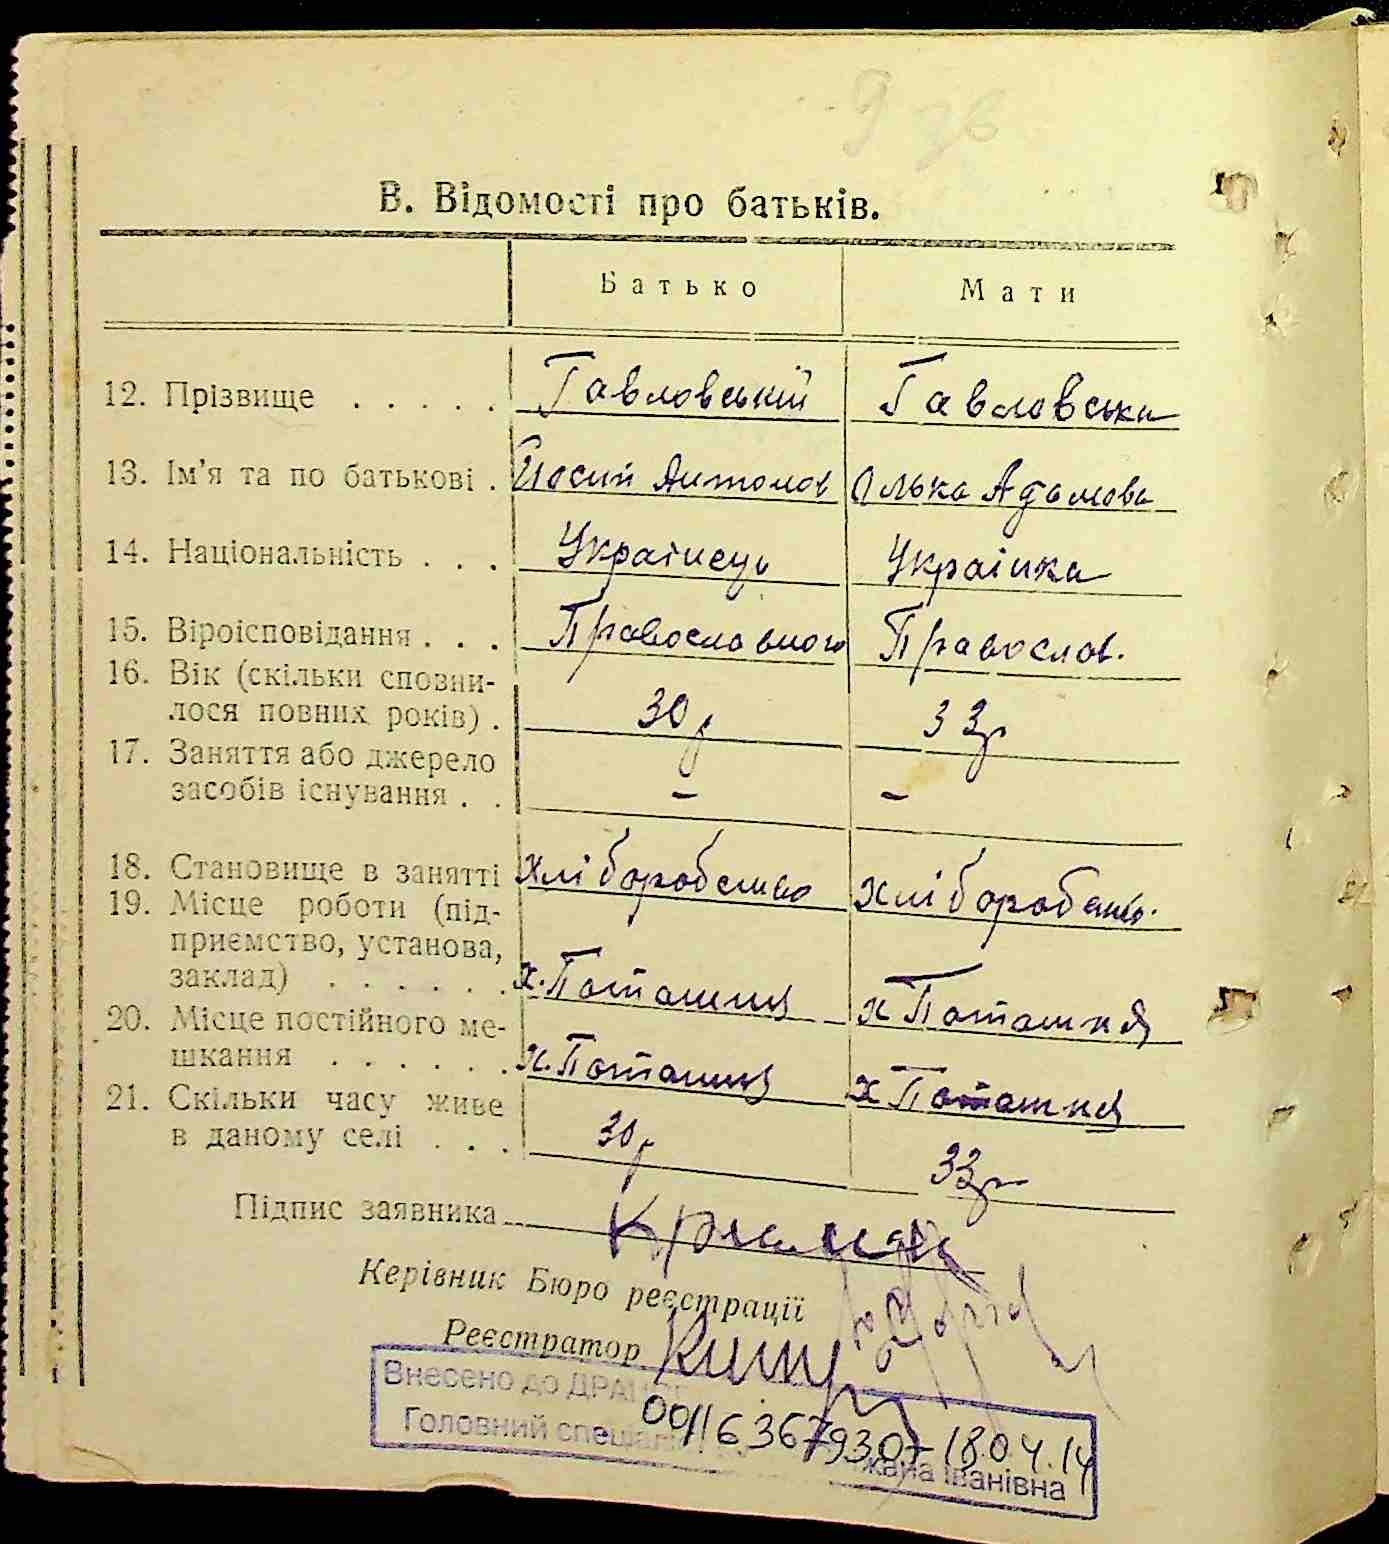 9 зв
В. Відомості про батьків.
Батько Мати
12. Прізвище . . . . . Гавловський Гавловська
13. Ім'я та по батькові . Йосип Антонов Олька Адамова
14. Національність . . . Українець Українка
15. Віроісповідання . . . Православного Правослов.
16. Вік (скільки сповни-
лося повних років) . 30 р 33 р
17. Заняття або джерело
засобів існування . . – –
18. Становище в занятті хліборобство хліборобство.
19. Місце роботи (під-
приємство, установа,
заклад) . . . . . . х. Поташня х Поташня
20. Місце постійного ме-
шкання . . . . . . х. Поташня х Поташня
21. Скільки часу живе
в даному селі . . . 30 р 33 р
Підпис заявника
Керівник Бюро реєстрації
Реєстратор
Внесено до ДРАЦС
00116367930 18.04.14
Головний спеціаліст Іванівна